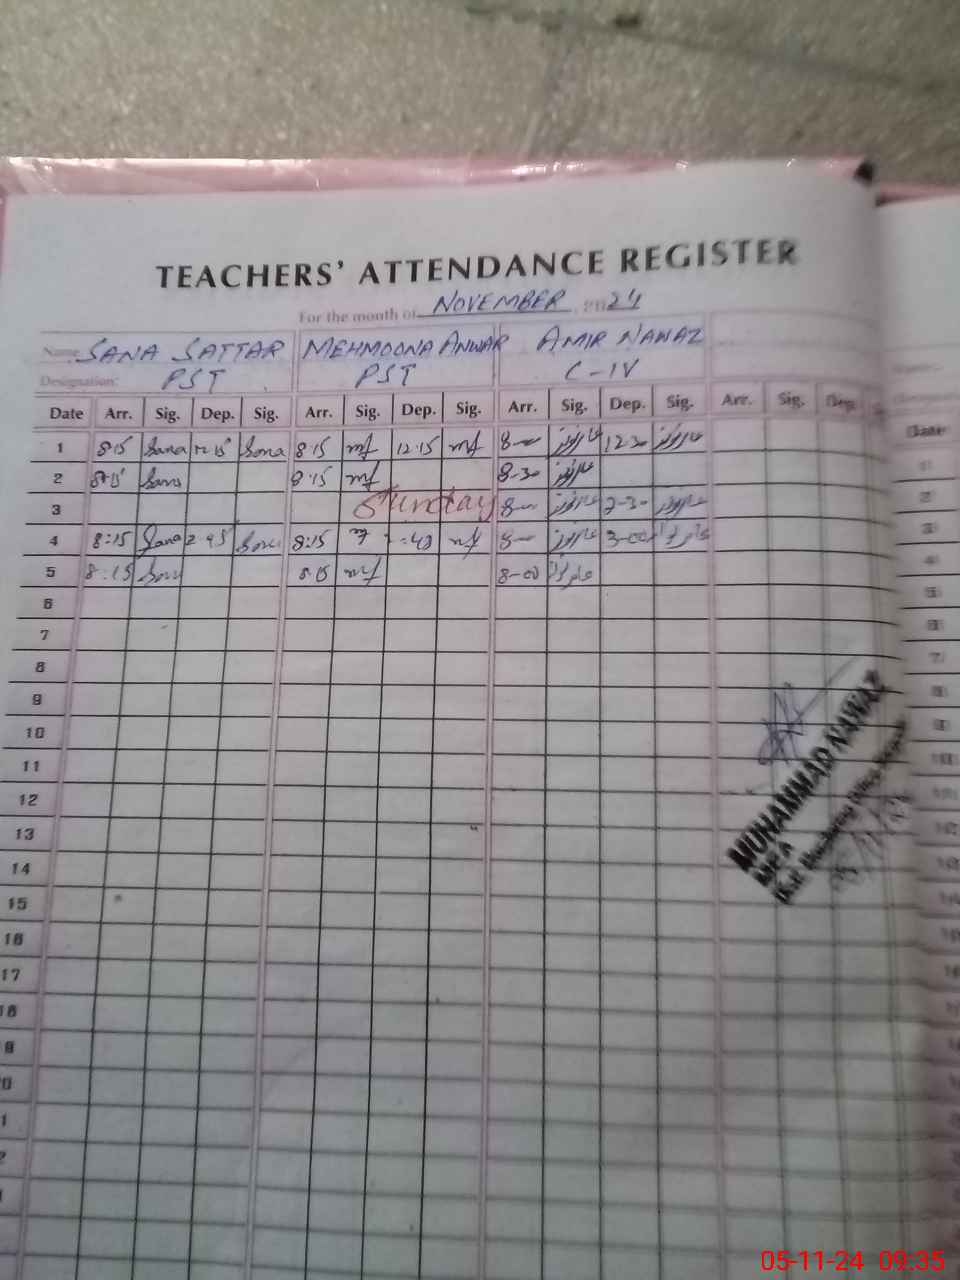 TEACHERS' ATTENDANCE REGISTER
For the month of NOVEMBER, 2024
Name SANA SATTAR MEHMOONA ANWAR AMIR NAWAZ
Designation: PST PST C-IV
Date Arr. Sig. Dep. Sig. Arr. Sig. Dep. Sig. Arr. Sig. Dep. Sig. Arr. Sig. Dep.
1 8:15 Sana 12:15 Sana 8:15 12:15 8-00 عامر نواز 12-30 عامر نواز
2 8:15 Sana 8:15 8-30 عامر نواز
3 Sunday 8-00 عامر نواز 2-30 عامر نواز
4 8:15 Sana 2:45 Sana 8:15 8-00 عامر نواز 3-00 عامر نواز
5 8:15 Sana 8:15 8-00 عامر نواز
6
7
8
9
10
11
12
13
14
15
16
17
18
MUHAMMAD NAWAZ
MEA
05-11-24 09:35